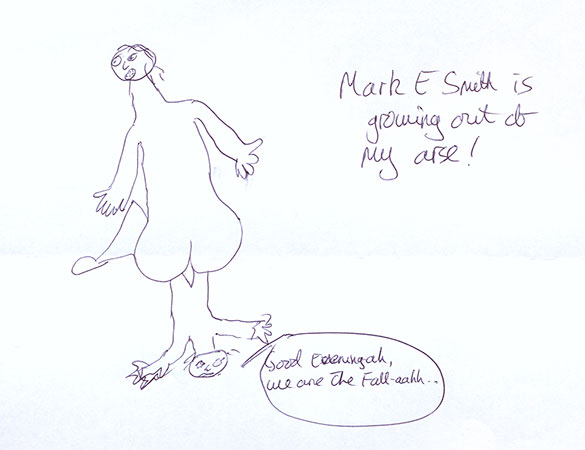 Mark E Smith is
growing out of
my arse!
Good eveningah,
we are The Fall-aahh..